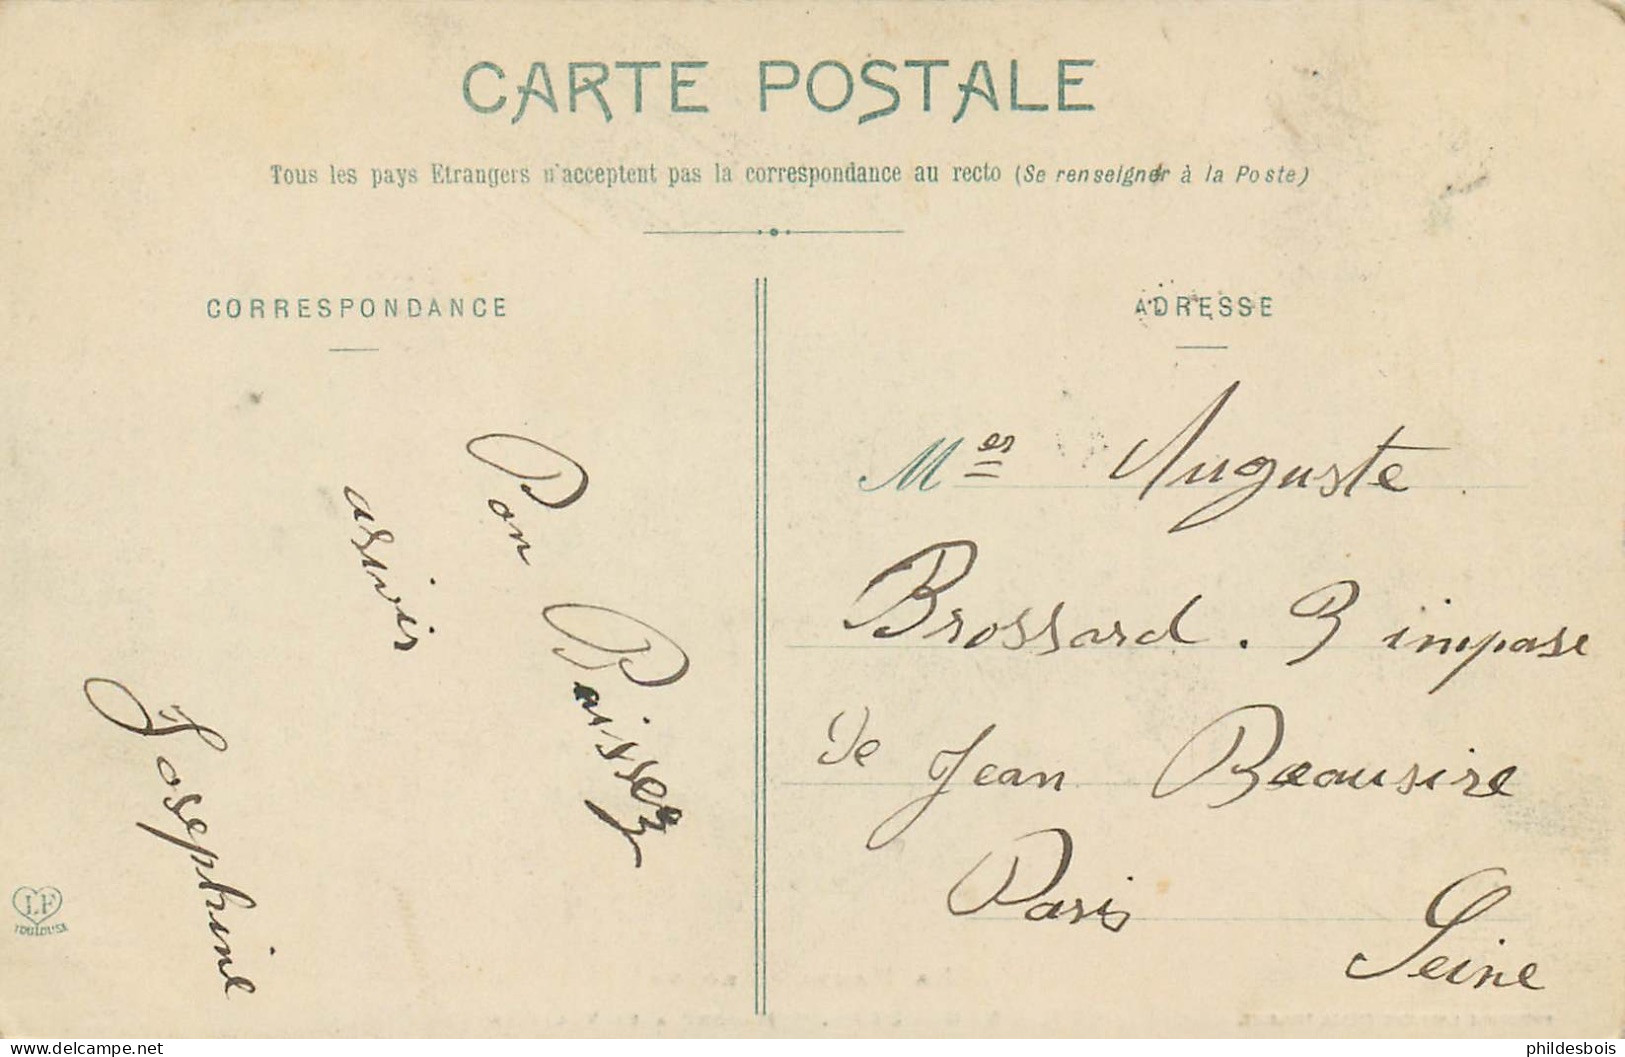 CARTE POSTALE
Tous les pays Etrangers n'acceptent pas la correspondance au recto (Se renseigner à la Poste)
CORRESPONDANCE
Bon Baissez
asvoir
Josephine
LF
TOULOUSE
ADRESSE
Mer Auguste
Brossard. 3 impase
de Jean Beausire
Paris
Seine
phildesbois